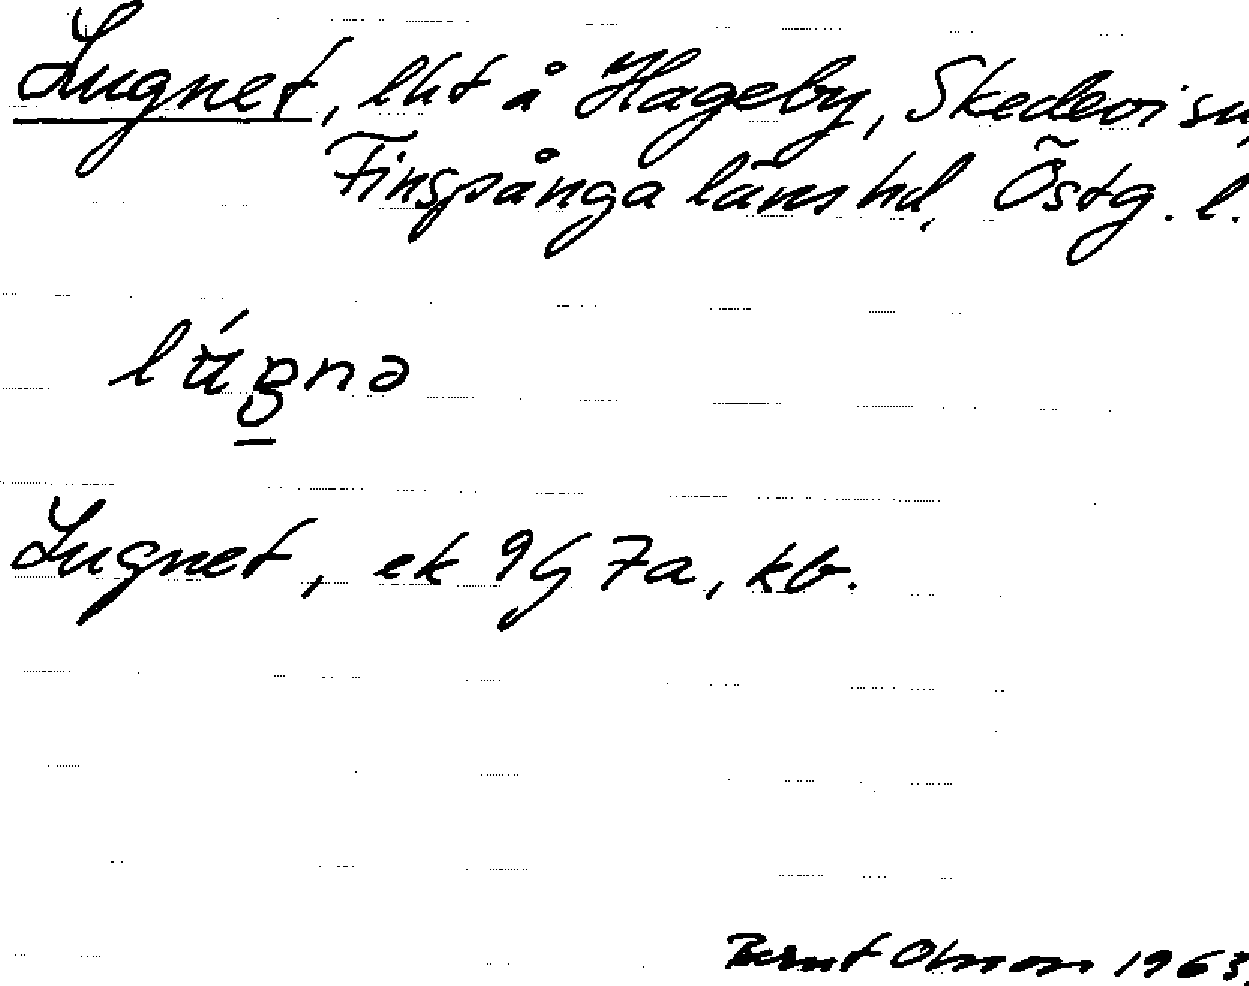 Lugnet, lht å Hageby, Skedevi sn,
Finspånga läns hd, Östg. l.
lúgnə
Lugnet, ek 9G 7a, kb.
Bernt Olsson 1963.